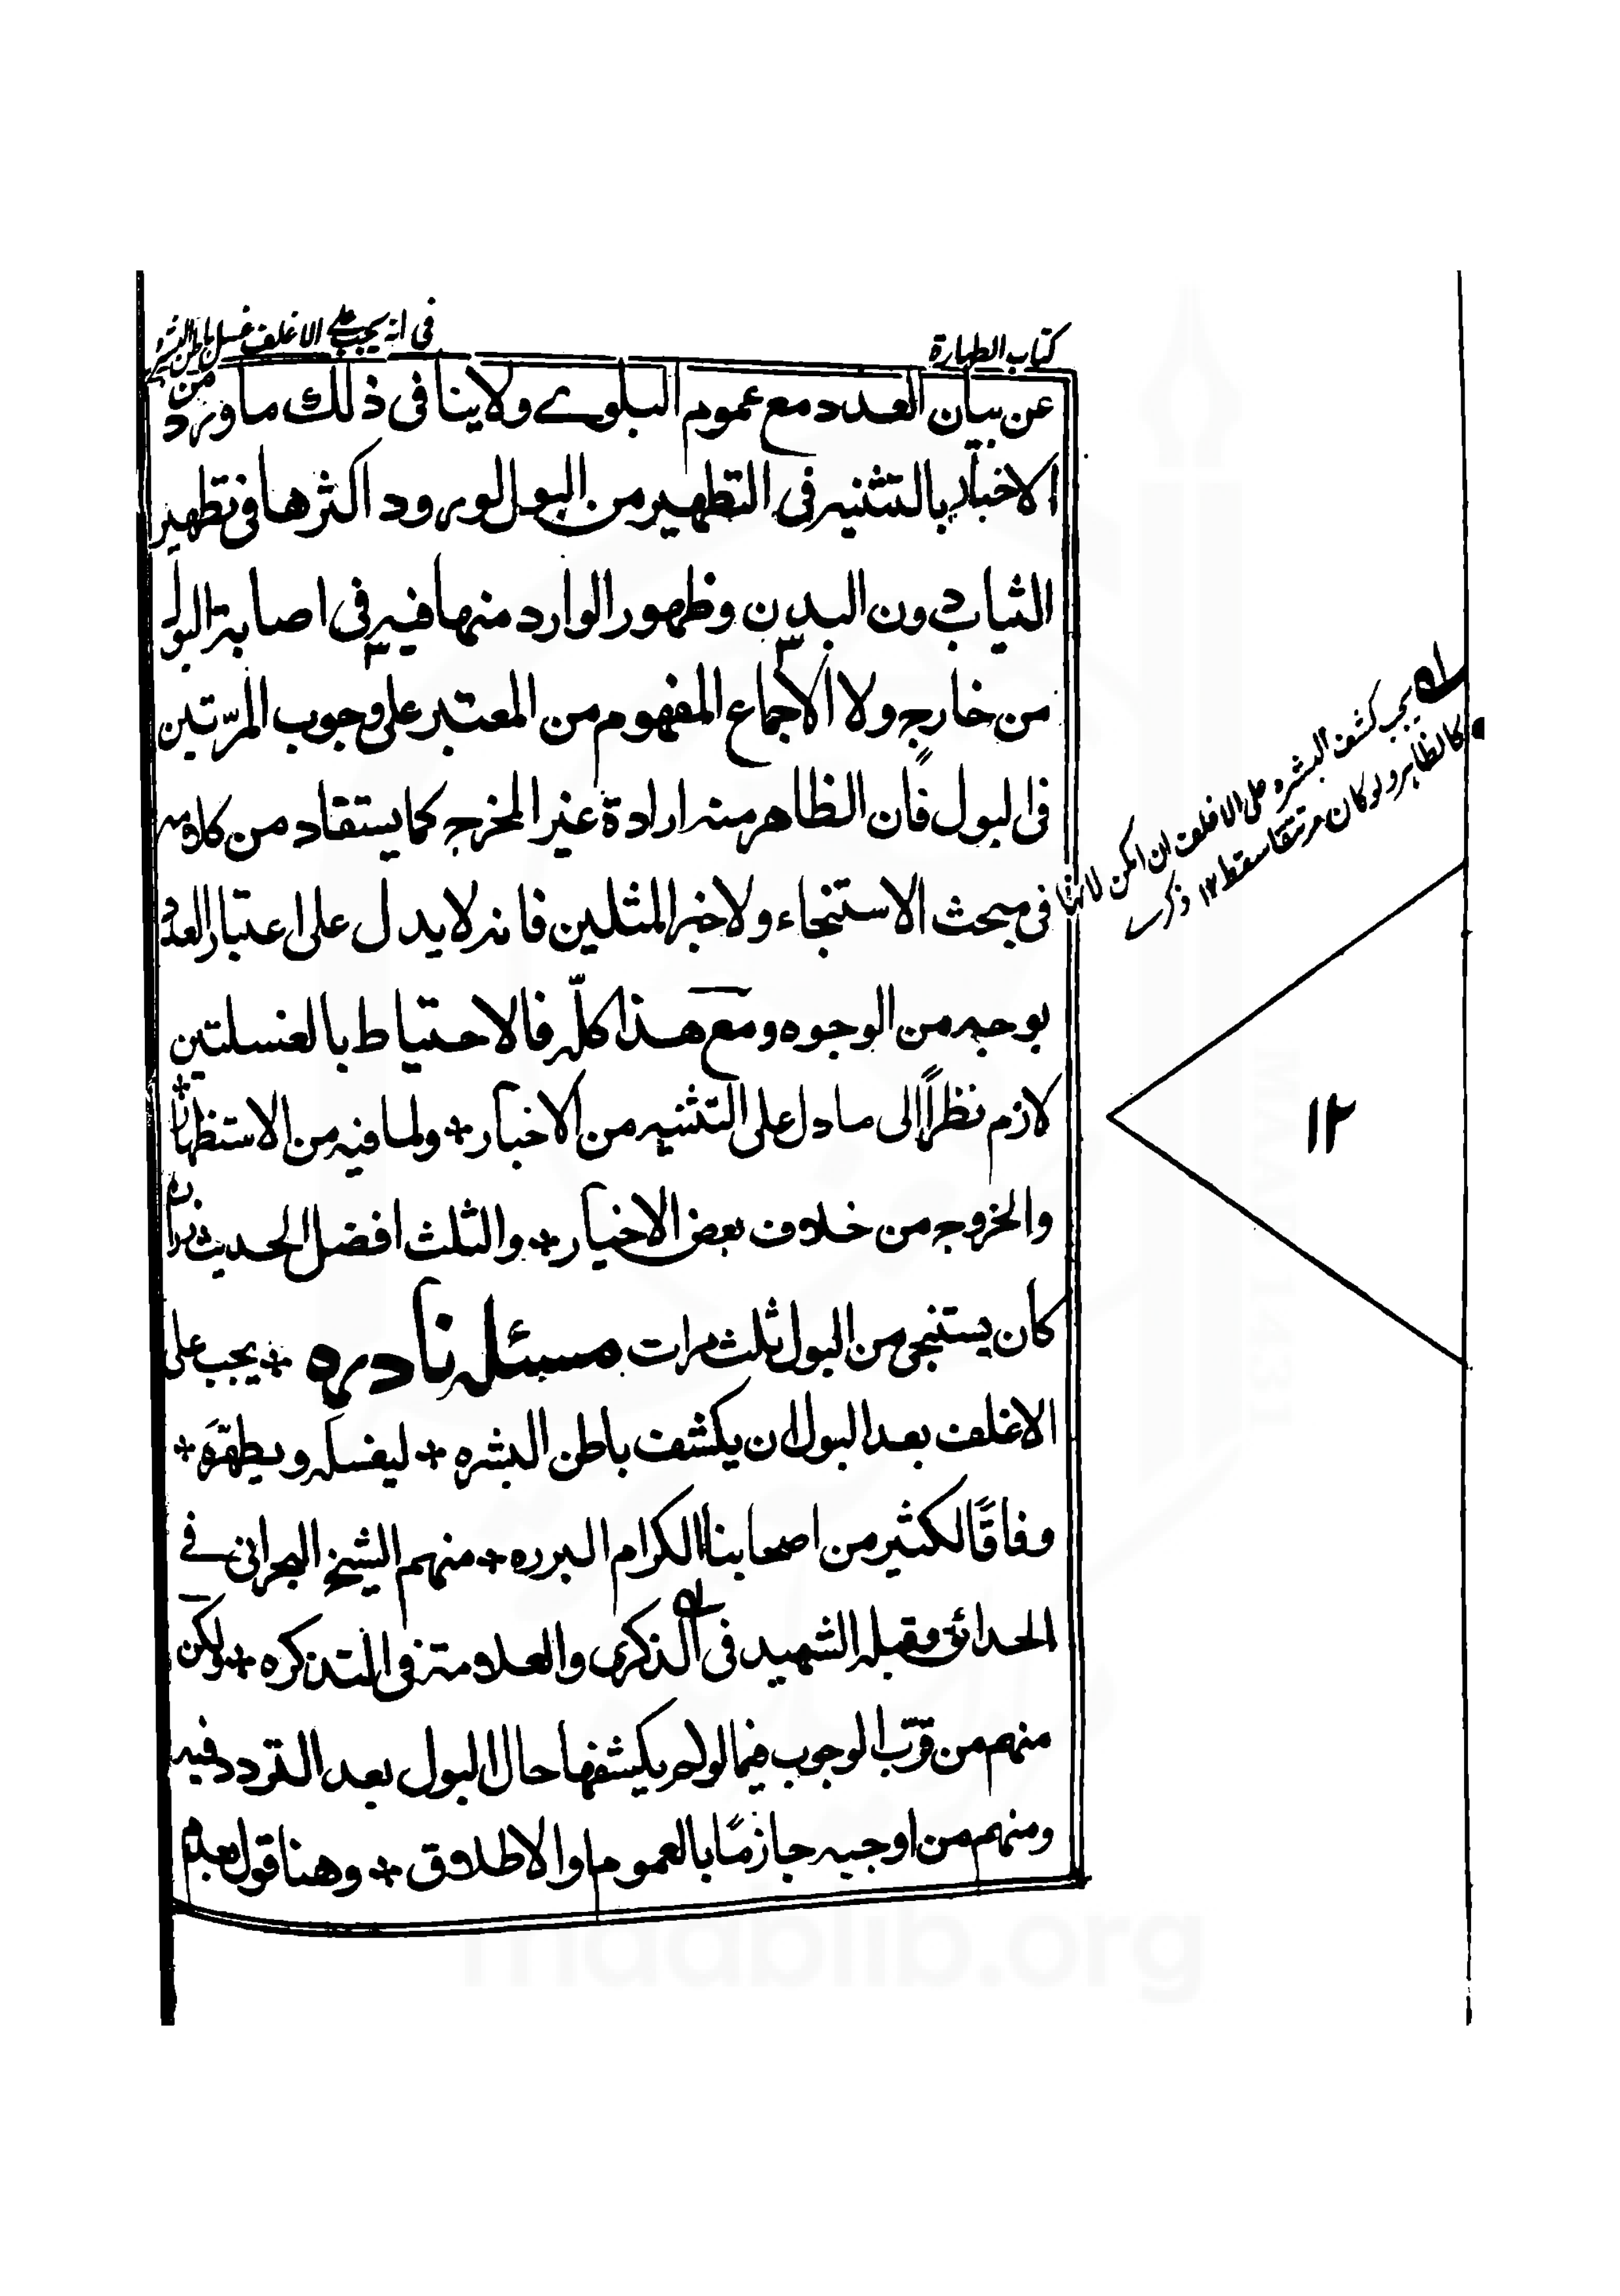 كتاب الطهارة
فى انه يجب على الاغلف غسل باطن البشره
عن بيان العدد مع عموم البلوے ولاينا فى ذلك ما ورد من
الاخبار بالتثنيه فى التطهير من البول لورود اكثرها فى تطهير
الثياب دون البدن وظهور الوارد منها فيه فى اصابة البول
من خارج ولا الاجماع المفهوم من المعتبر على وجوب المرّتين
فى البول فان الظاهر منه ارادة غير المخرج كما يستفاد من كلامه
فى مبحث الاستنجاء ولاخبر المثلين فانه لا يدل على اعتبار العدد
بوجه من الوجوه ومع هذا كلّه فالاحتياط بالغسلتين
لازم نظراً الى ما دل على التثنيه من الاخبار + ولما فيه من الاستظهار +
والخروج من خلاف بعض الاخيار + والثلث افضل لحديث زرارة
كان يستنجى من البول ثلث مرات مسئله نادره + يجب على
الاغلف بعد البول ان يكشف باطن البشره + ليغسله ويطهّره +
وفاقًا لكثير من اصحابنا الكرام البرره + منهم الشيخ البحرانى فے
الحدائق وقبله الشهيد فى الذكرى والعلامة فى التذكره + ولكن
منهم من قرّب الوجوب فيما لو لم يكشفها حال البول بعد التردد فيه
ومنهم من اوجبه جازمًا بالعموم والاطلاق + وهنا قول بعدم
يجب كشف البشره على الاغلف ان امكن لانها
كالظاهر ولو كان مرتتقا سقط ١٢ ذكرے
١٢
maablib.org
MAAB 1431